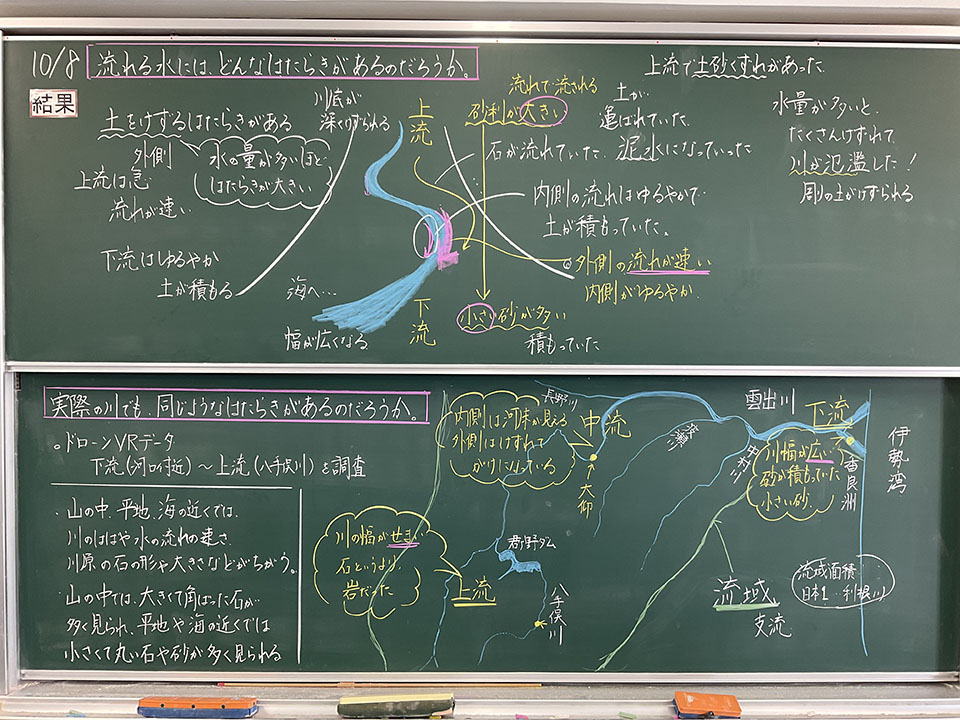 10/8
流れる水には、どんなはたらきがあるのだろうか。
結果
土をけずるはたらきがある
川底が
深くけずられる
外側
上流は急
流れが速い
水の量が多いほど
はたらきが大きい
下流はゆるやか
土が積もる
海へ…
幅が広くなる
上流
下流
流れて流される
砂利が大きい
石が流れていた
土が
運ばれていた
泥水になっていった
内側の流れはゆるやかで
土が積もっていた。
外側の流れが速い
内側がゆるやか
小さい砂が多い
積もっていた
上流で土砂くずれがあった
水量が多いと
たくさんけずれて
川が氾濫した!
周りの土がけずられる
実際の川でも、同じようなはたらきがあるのだろうか。
ドローンVRデータ
下流(河口付近)～上流(八手俣川)を調査
・山の中、平地、海の近くでは、
川のはばや水の流れの速さ、
川原の石の形や大きさなどがちがう。
・山の中では、大きくて角ばった石が
多く見られ、平地や海の近くでは
小さくて丸い石や砂が多く見られる
川の幅がせまい
石というより
岩だった
上流
内側は河床が見える
外側はけずれて
がけになっている
長野川
中流
大仰
君ヶ野ダム
八手俣川
波瀬川
中村川
雲出川
下流
川幅が広い
砂が積もっていた
小さい砂
香良洲
伊勢湾
流域
支流
流域面積
日本1…利根川